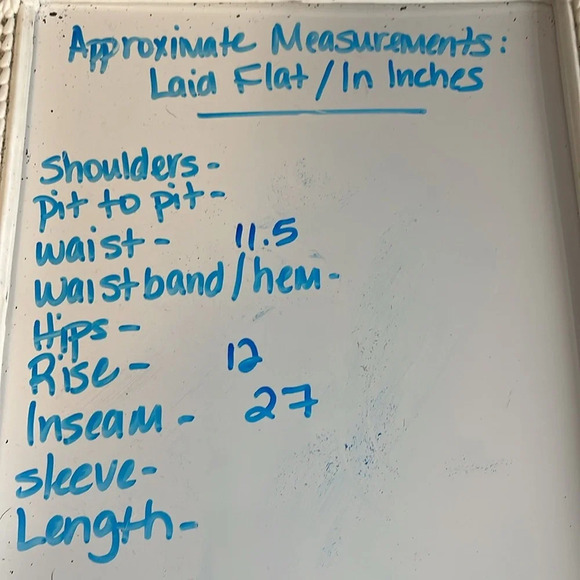 Approximate Measurements:
Laid Flat / In Inches
Shoulders -
pit to pit -
waist - 11.5
waistband/hem -
Hips -
Rise - 12
Inseam - 27
sleeve -
Length -